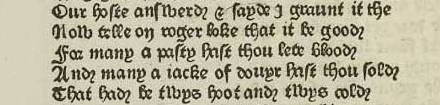 Our hoste answerd & sayde I graunt it the
Now telle on roger loke that it be good
For many a pasty hast thou lete blood
And many a iacke of douyr hast thou sold
That had be twys hoot and twys cold